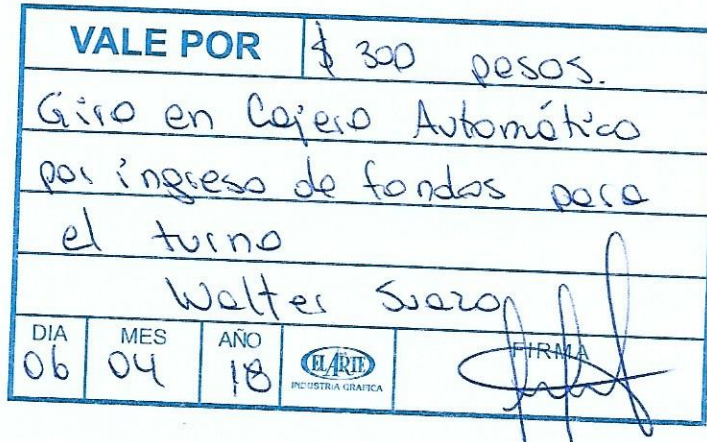 VALE POR $ 300 pesos.
Giro en Cajero Automático
por ingreso de fondos para
el turno
Walter Suazo
DIA MES AÑO FIRMA
06 04 18
EL ARTE
INDUSTRIA GRAFICA